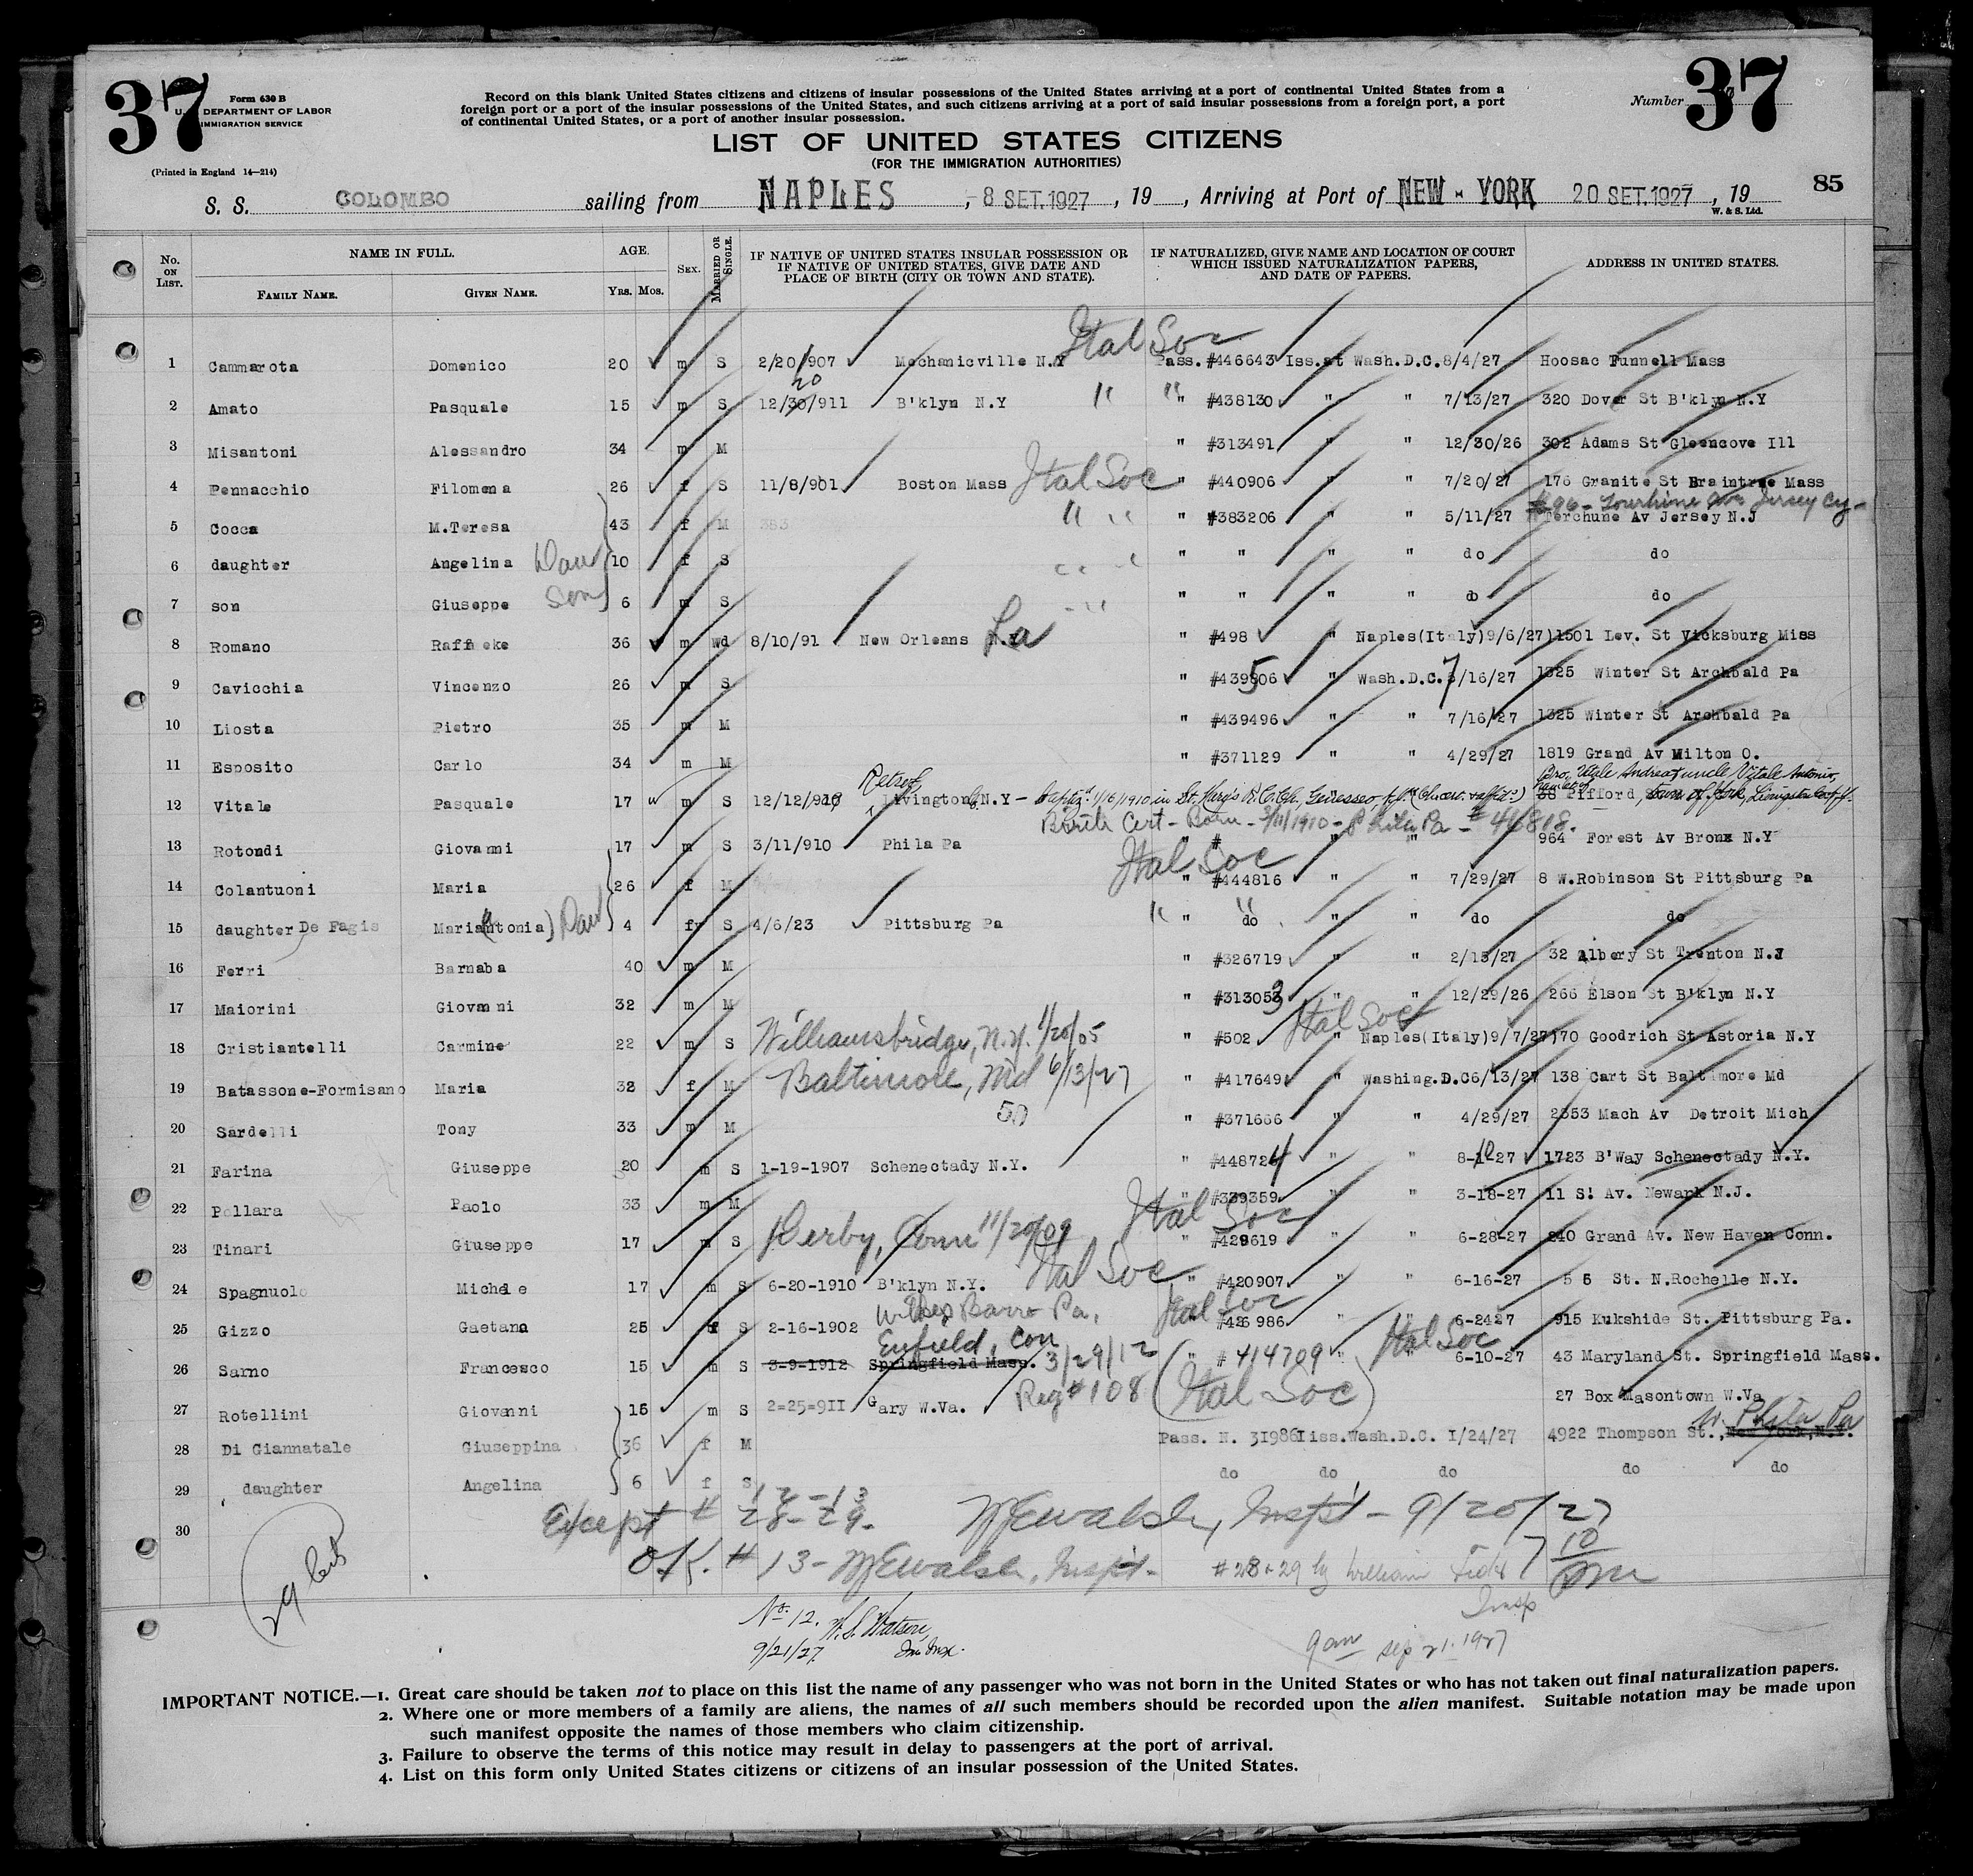 37
37
Form 630 B
U.S. DEPARTMENT OF LABOR
IMMIGRATION SERVICE
(Printed in England 14—214)
Record on this blank United States citizens and citizens of insular possessions of the United States arriving at a port of continental United States from a
foreign port or a port of the insular possessions of the United States, and such citizens arriving at a port of said insular possessions from a foreign port, a port
of continental United States, or a port of another insular possession.
Number
LIST OF UNITED STATES CITIZENS
(FOR THE IMMIGRATION AUTHORITIES)
85
S. S. COLOMBO sailing from NAPLES, 8 SET.1927, 19 , Arriving at Port of NEW-YORK 20 SET.1927, 19
W. & S. Ltd.
No. ON LIST. NAME IN FULL. FAMILY NAME. GIVEN NAME. AGE. YRS. MOS. SEX. MARRIED OR SINGLE. IF NATIVE OF UNITED STATES INSULAR POSSESSION OR IF NATIVE OF UNITED STATES, GIVE DATE AND PLACE OF BIRTH (CITY OR TOWN AND STATE). IF NATURALIZED, GIVE NAME AND LOCATION OF COURT WHICH ISSUED NATURALIZATION PAPERS, AND DATE OF PAPERS. ADDRESS IN UNITED STATES.
Ital Soc
1 Cammarota Domenico 20 m S 2/20/907 Mechanicville N.Y Pass. #446643 Iss.at Wash.D.C.8/4/27 Hoosac Funnell Mass
20
2 Amato Pasquale 15 m S 12/30/911 B'klyn N.Y " " " #438130 " " 7/13/27 320 Dover St B'klyn N.Y
3 Misantoni Alessandro 34 m M " #313491 " " 12/30/26 302 Adams St Gleencove Ill
4 Pennacchio Filomena 26 f S 11/8/901 Boston Mass Ital Soc " #440906 " " 7/20/27 176 Granite St Braintree Mass
5 Cocca M.Teresa 43 f M " " " #383206 " " 5/11/27 Terchune Av Jersey N.J
6 daughter Angelina Dau 10 f S " " " " do do
7 son Giuseppe Son 6 m S " " " " do do
8 Romano Raffaeke 36 m Wd 8/10/91 New Orleans La " #498 " Naples(Italy)9/6/27)1501 Lev. St Vicksburg Miss
9 Cavicchia Vincenzo 26 m S " #439506 " Wash.D.C.7/16/27 1325 Winter St Archbald Pa
10 Liosta Pietro 35 m M " #439496 " " 7/16/27 1325 Winter St Archbald Pa
11 Esposito Carlo 34 m M " #371129 " " 4/29/27 1819 Grand Av Milton O.
Bro. Vitale Andrea & uncle Vitale Antonio,
12 Vitale Pasquale 17 m S 12/12/910 Retsof Livingston N.Y - Baptized 1/16/1910 in St. Mary's R.C.Ch., Geneseo 38 Pifford
Birth Cert - Born - 3/11/1910 - Phila Pa - # 46818.
13 Rotondi Giovanni 17 m S 3/11/910 Phila Pa # " " 964 Forest Av Bronx N.Y
Ital Soc
14 Colantuoni Maria 26 f M " #444816 " " 7/29/27 8 W.Robinson St Pittsburg Pa
15 daughter De Fagis Maria(antonia) Dau 4 f S 4/6/23 Pittsburg Pa " " " do " " do do
16 Ferri Barnaba 40 m M " #326719 " " 2/15/27 32 Albery St Trenton N.J
17 Maiorini Giovanni 32 m M " #313053 " " 12/29/26 266 Elson St B'klyn N.Y
18 Cristiantelli Carmine 22 m S Williamsbridge, N.Y. 1/20/05 " #502 Ital Soc " Naples(Italy)9/7/27)70 Goodrich St Astoria N.Y
19 Batassone-Formisano Maria 32 f M Baltimore, Md 6/13/27 " #417649 " Washing.D.C6/13/27 138 Cart St Baltimore Md
20 Sardelli Tony 33 m M 50 " #371666 " " 4/29/27 2353 Mach Av Detroit Mich
21 Farina Giuseppe 20 m S 1-19-1907 Schenectady N.Y. " #448724 " " 8-10-27 1723 B'Way Schenectady N.Y.
22 Pollara Paolo 33 m M " #339359 " " 3-18-27 11 S! Av. Newark N.J.
Ital Soc
23 Tinari Giuseppe 17 m S Derby, Conn 11/20/09 " #429619 " " 6-28-27 240 Grand Av. New Haven Conn.
24 Spagnuolo Michele 17 m S 6-20-1910 B'klyn N.Y. Ital Soc " #420907 " " 6-16-27 5 5 St. N.Rochelle N.Y.
25 Gizzo Gaetana 25 f S 2-16-1902 Wilkes Barre Pa. Ital Soc #426986 " " 6-2427 915 Kukshide St. Pittsburg Pa.
Enfield, Con
26 Sarno Francesco 15 m S 3-9-1912 Springfield Mass. 3/29/12 " # 414709 " Ital Soc 6-10-27 43 Maryland St. Springfield Mass.
27 Rotellini Giovanni 15 m S 2=25=9II Gary W.Va. Reg # 108 (Ital Soc) 27 Box Masontown W.Va
W. Phila Pa
28 Di Giannatale Giuseppina 36 f M Pass. N. 31986Iiss.Wash.D.C. I/24/27 4922 Thompson St., New York, N.Y.
29 daughter Angelina 6 f S do do do do do
30
Except # 12 - 13 28 - 29. W J Ewalsh, Insp't - 9/20/27
O.K. # 13 - W J Ewalsh, Insp't. #28 & 29 by William
Insp
29 Cits
No. 12. W. S. Watson,
9/21/27. Imm Insp.
9 am Sep 21. 1927
IMPORTANT NOTICE.—1. Great care should be taken not to place on this list the name of any passenger who was not born in the United States or who has not taken out final naturalization papers.
2. Where one or more members of a family are aliens, the names of all such members should be recorded upon the alien manifest. Suitable notation may be made upon
such manifest opposite the names of those members who claim citizenship.
3. Failure to observe the terms of this notice may result in delay to passengers at the port of arrival.
4. List on this form only United States citizens or citizens of an insular possession of the United States.